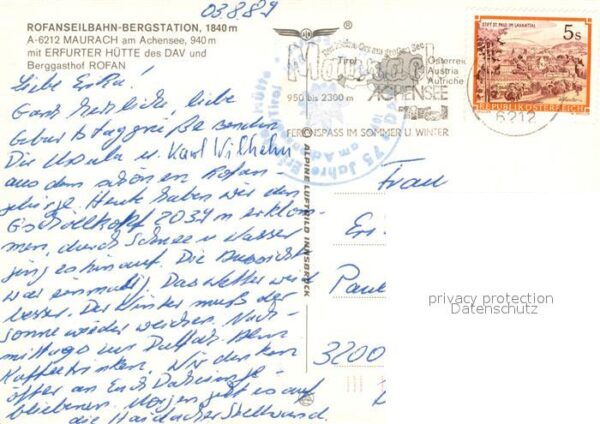 03.8.89
ROFANSEILBAHN-BERGSTATION, 1840 m
A-6212 MAURACH am Achensee, 940 m
mit ERFURTER HÜTTE des DAV und
Berggasthof ROFAN
Liebe Erika!
Ganz herzliche, liebe
Geburtstagsgrüße senden
Dir Ursula u. Karl Wilhelm
aus dem schönen Rofan-
gebirge. Heute haben wir den
Gschöllkopf 2039 m erklom-
men, durch Schnee u. Wasser
ging es hinauf. Die Aussicht
war einmalig. Das Wetter wird
besser. Der Winter muß der
Sonne wieder weichen. Nach-
mittags zur
Kaffeetrinken. Wir denken
öfter an Euch
bliebenen. Morgen geht es auf
die Haidacher Stellwand.
ALPINE LUFTBILD INNSBRUCK
Tirol
Maurach
ACHENSEE
950 bis 2300 m
Österreich
Austria
Autriche
FERIENSPASS IM SOMMER U. WINTER
75 Jahre
6212
STIFT ST. PAUL IM LAVANTTAL
5 S
REPUBLIK ÖSTERREICH
Frau
3200
privacy protection
Datenschutz